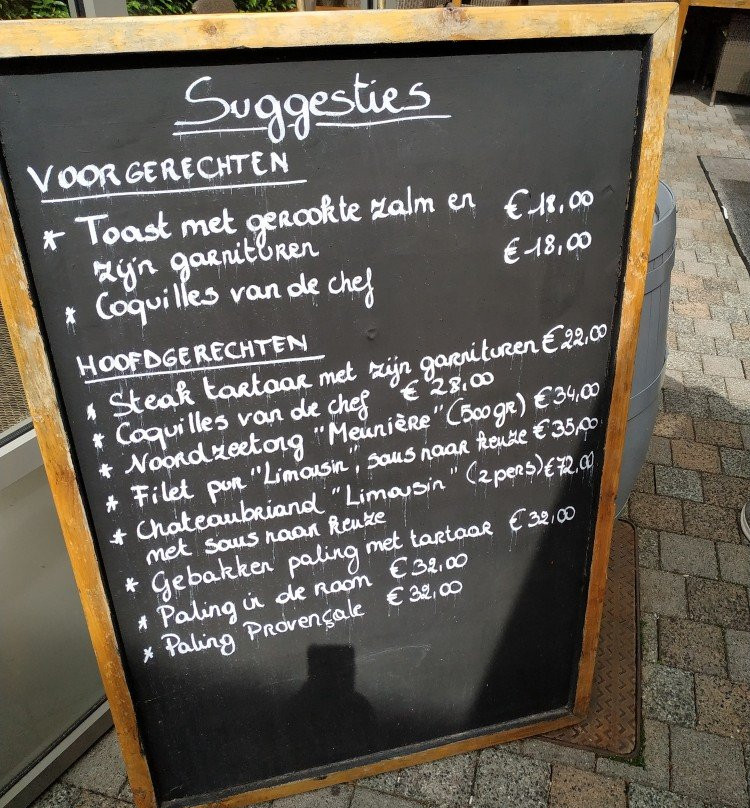 Suggesties
VOORGERECHTEN
* Toast met gerookte zalm en € 18,00
zijn garnituren € 18,00
* Coquilles van de chef
HOOFDGERECHTEN
* Steak tartaar met zijn garnituren € 22,00
* Coquilles van de chef € 28,00
* Noordzeetong "Meunière" (500gr) € 34,00
* Filet pur "Limousin", saus naar keuze € 35,00
* Chateaubriand "Limousin" (2pers) € 72,00
met saus naar keuze
* Gebakken paling met tartaar € 32,00
* Paling in de room € 32,00
* Paling Provençale € 32,00